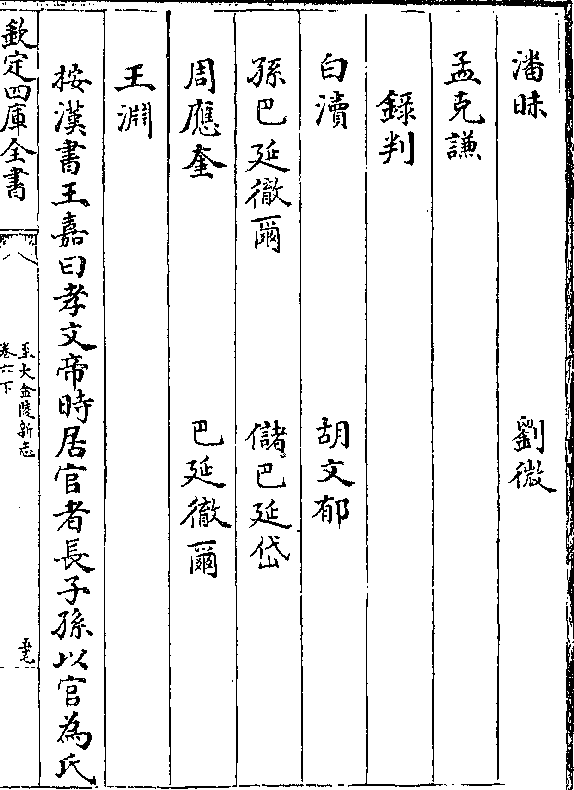 潘昧　劉微
孟克謙
錄判
白瀆　胡文郁
孫巴延徹爾　儲巴延岱
周應奎　巴延徹爾
王淵
按漢書王嘉曰孝文帝時居官者長子孫以官為氏
欽定四庫全書
至大金陵新志
卷六下